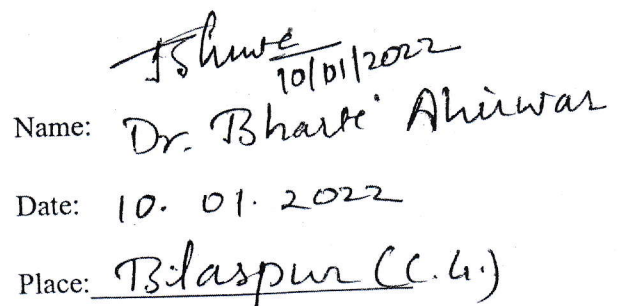 10/01/2022
Name: Dr. Bharti Ahirwar
Date: 10. 01. 2022
Place: Bilaspur (C.G.)